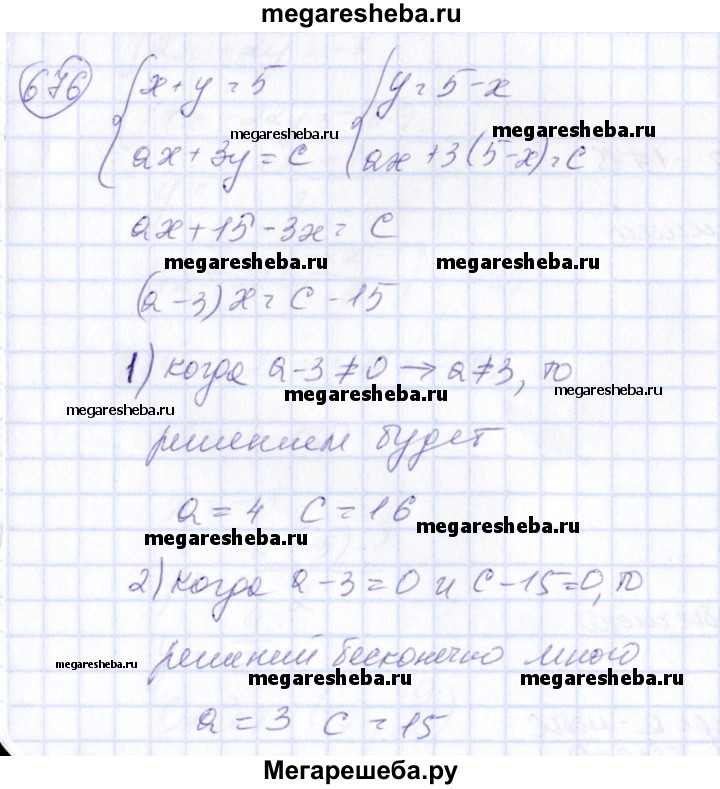 megaresheba.ru
676 { x + y = 5 { y = 5 - x
megaresheba.ru megaresheba.ru
ax + 3y = c ax + 3(5-x) = c
ax + 15 - 3x = c
megaresheba.ru megaresheba.ru
(a - 3) x = c - 15
1) когда a - 3 ≠ 0 → a ≠ 3, то
megaresheba.ru megaresheba.ru megaresheba.ru
решением будет
a = 4 c = 16
megaresheba.ru megaresheba.ru
2) когда a - 3 = 0 и c - 15 = 0, то
решений бесконечно много
megaresheba.ru megaresheba.ru megaresheba.ru
a = 3 c = 15
Мегарешеба.ру